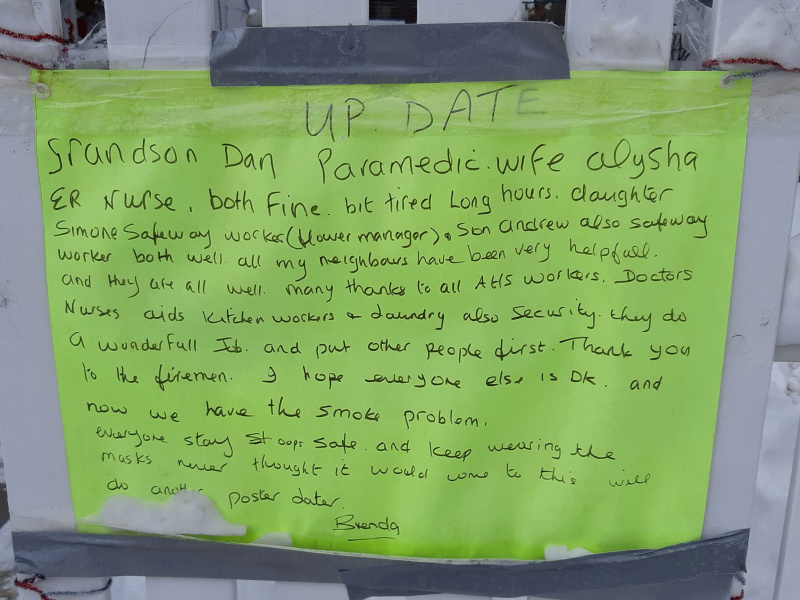 UP. DATE
Grandson Dan Paramedic. wife alysha
ER Nurse. both Fine. bit tired Long hours. daughter
Simone Safeway worker (flower manager). Son Andrew also safeway
worker both well. all my neighbours have been very helpfull.
and they are all well. many thanks to all AHS workers. Doctors
Nurses aids Kitchen workers & Laundry also Security. they do
a wonderfull Job. and put other people first. Thank you
to the firemen. I hope everyone else is OK. and
now we have the smoke problem.
everyone stay St oops safe. and keep wearing the
masks never thought it would come to this will
do another poster later.
Brenda